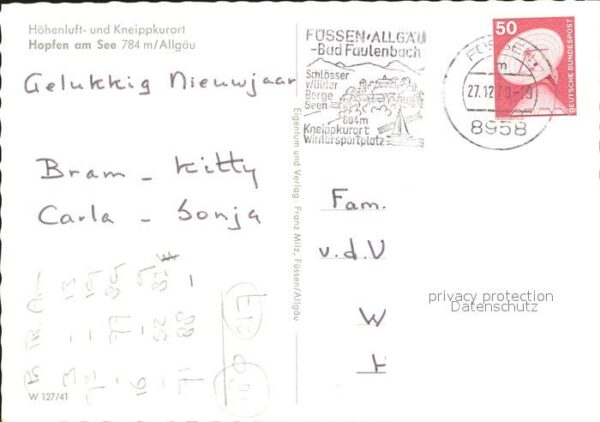 Höhenluft- und Kneippkurort
Hopfen am See 784 m/Allgäu
Gelukkig Nieuwjaar
Bram - Kitty
Carla - Sonja
W 127/41
Eigentum und Verlag: Franz Milz, Füssen/Allgäu
FÜSSEN/ALLGÄU
-Bad Faulenbach
Schlösser
Wälder
Berge
Seen
804m
Kneippkurort
Wintersportplatz
FÜSSEN
m
27.12.79-18
8958
50
DEUTSCHE BUNDESPOST
Fam.
v.d.V
W
privacy protection
Datenschutz